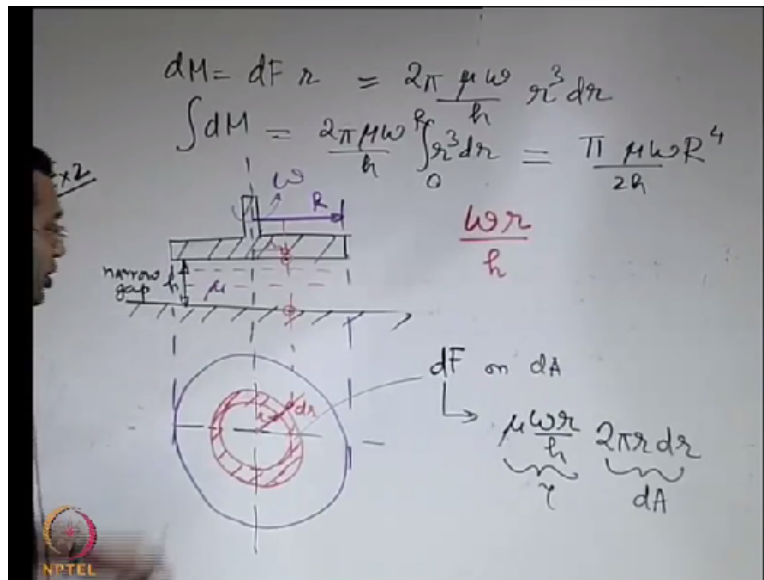 dM = dF r = 2π μω/h r³ dr
∫dM = 2πμω/h ∫₀ᴿ r³dr = π μωR⁴/2h
Ex 2
ω
R
ωr/h
narrow gap
h
μ
dF on dA
r
dr
μωr/h 2πrdr
τ
dA
NPTEL